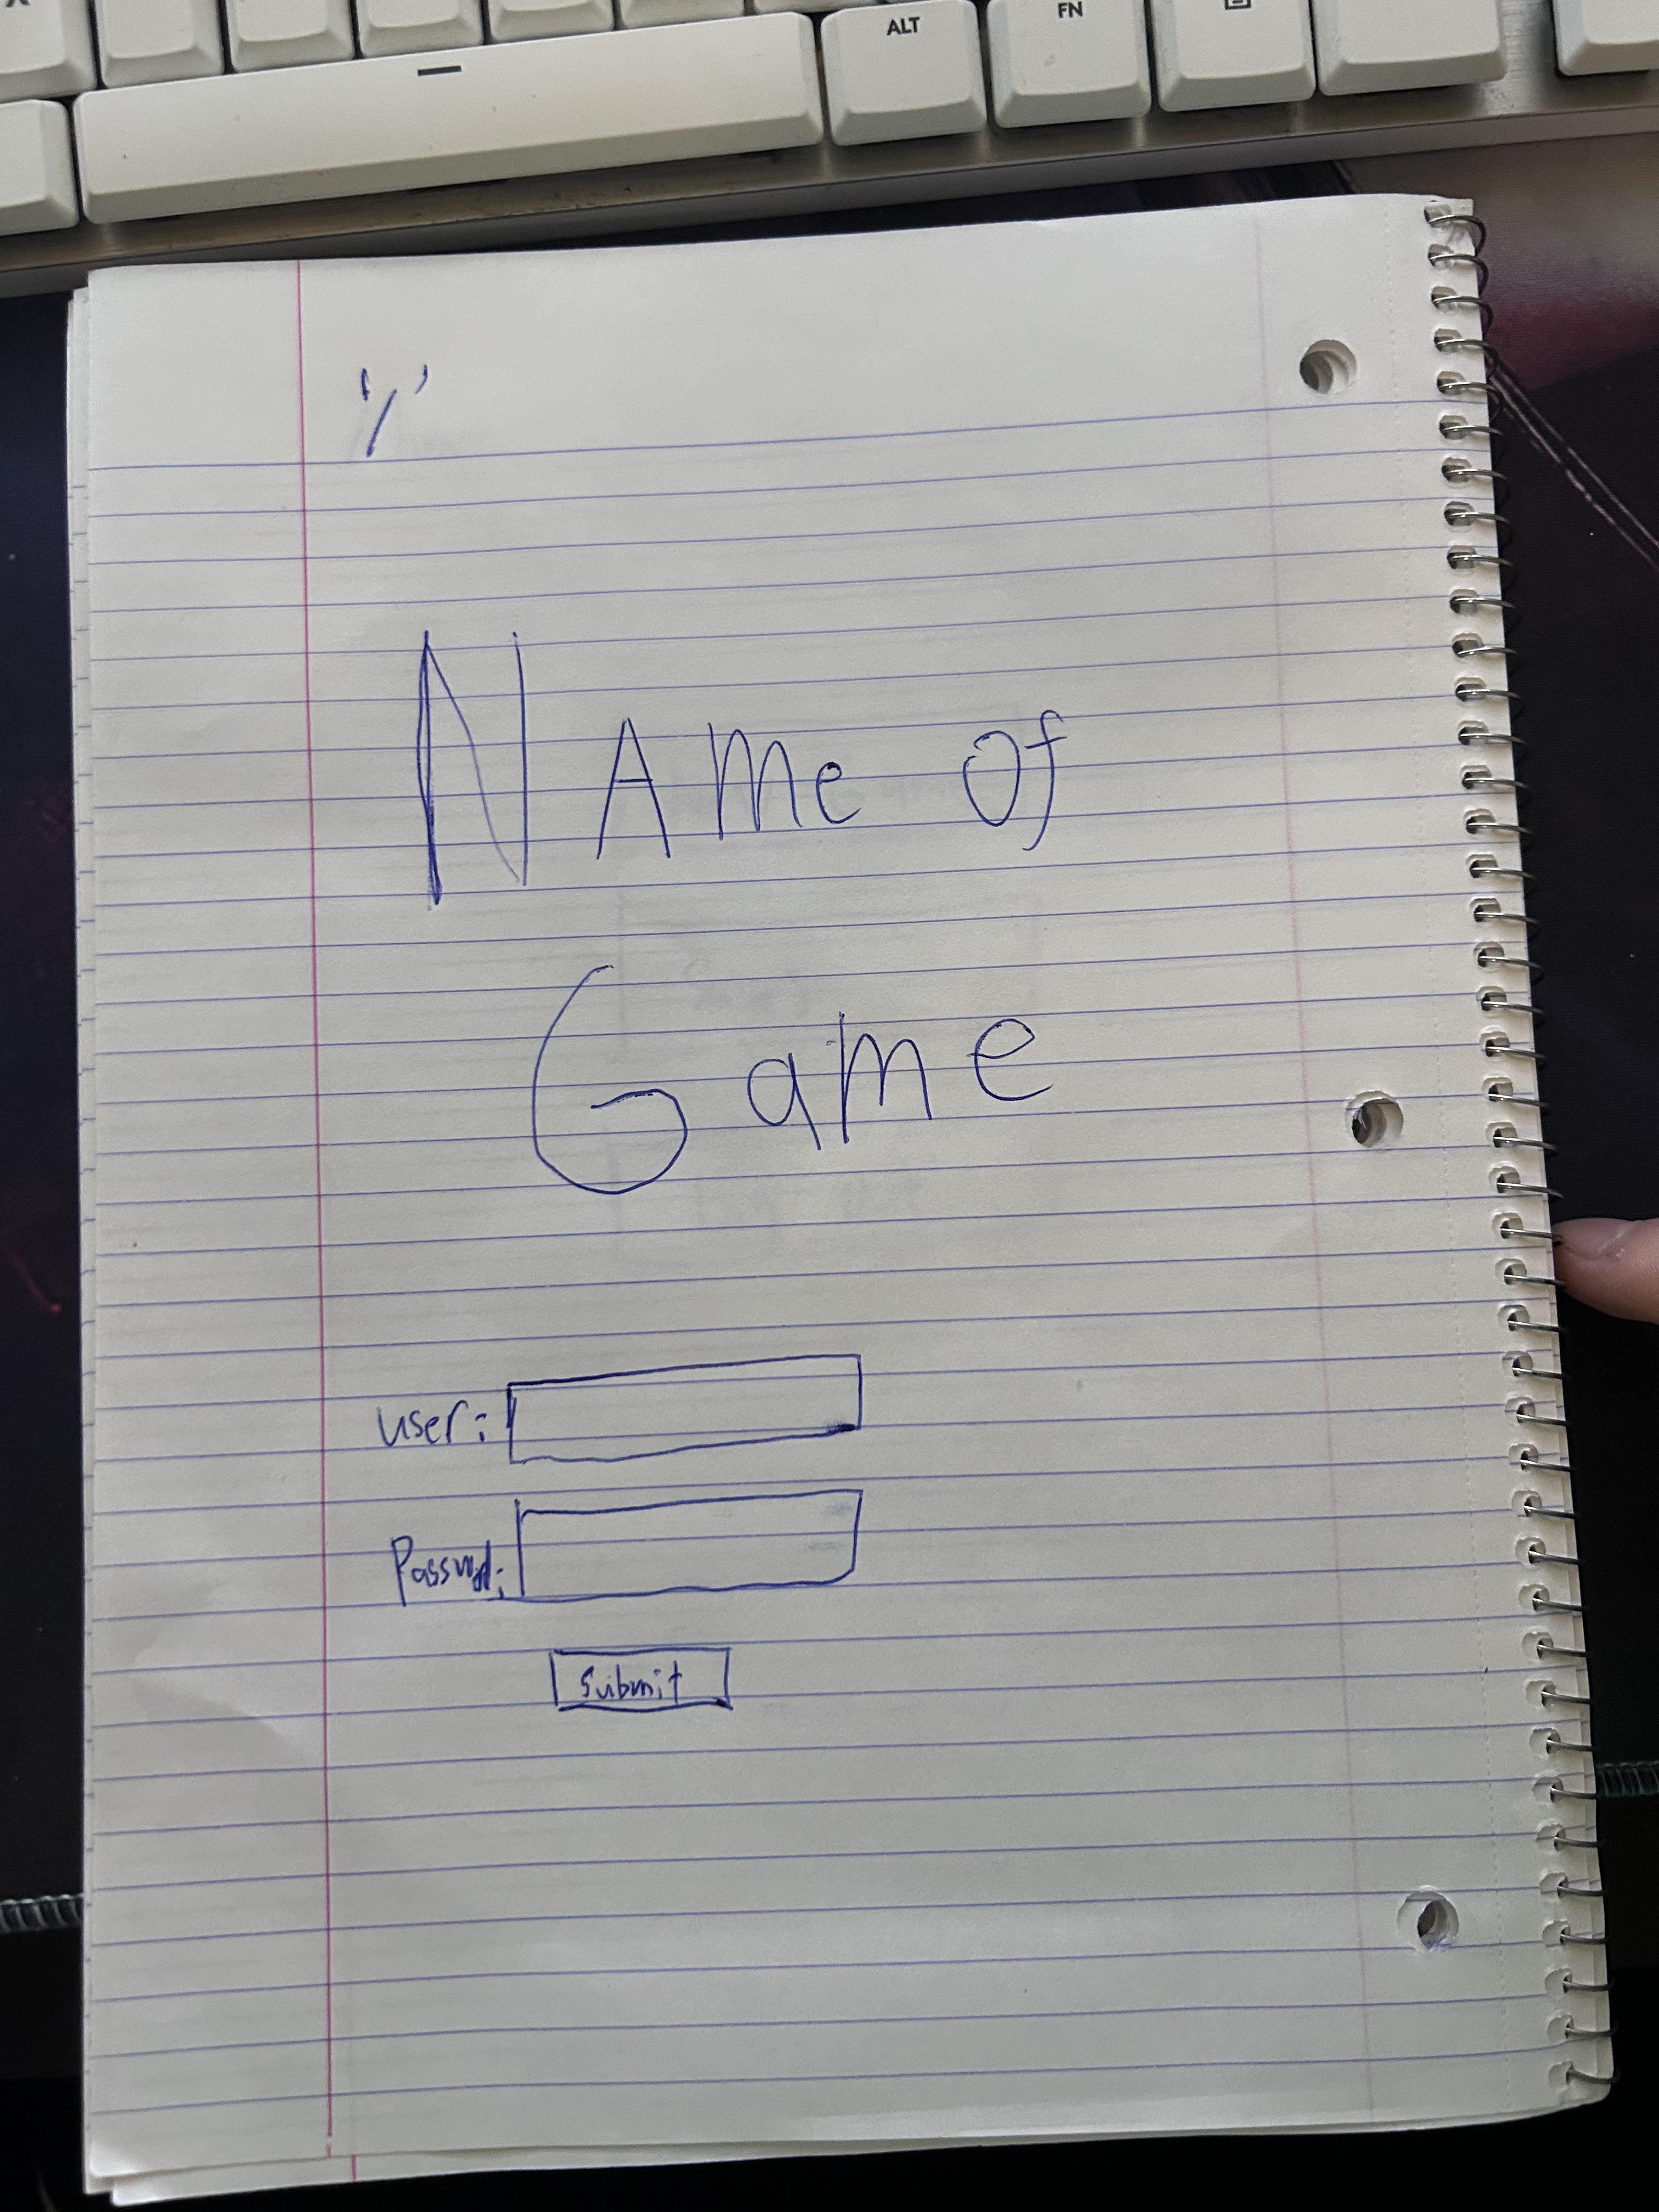 ALT FN
'/'
NAme of
Game
user:
Passwd:
Submit